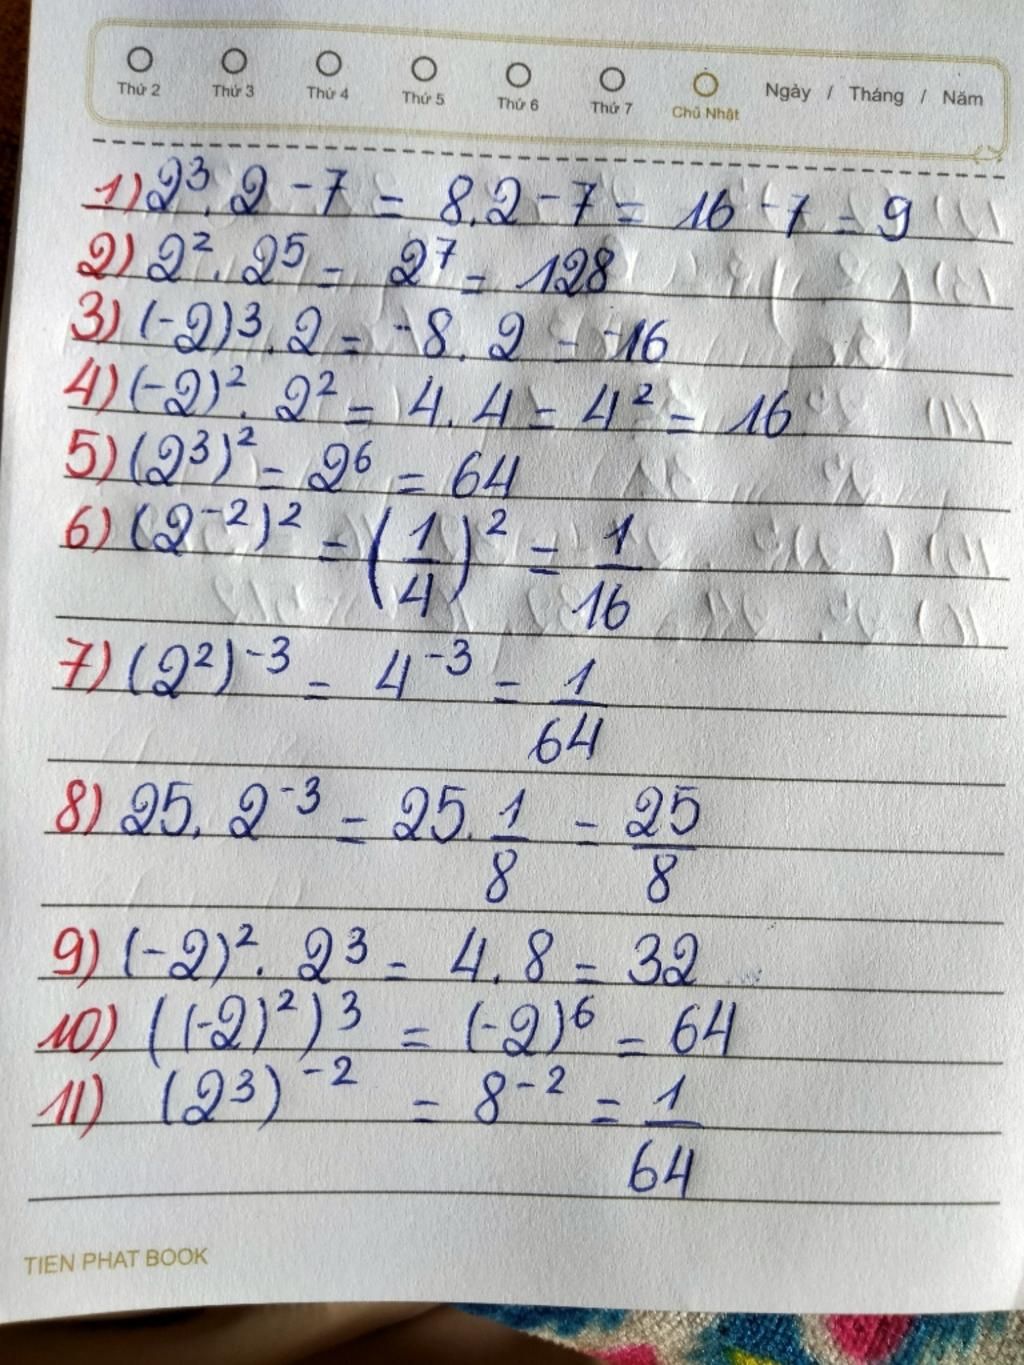 Thứ 2 Thứ 3 Thứ 4 Thứ 5 Thứ 6 Thứ 7 Chủ Nhật Ngày / Tháng / Năm
1) 2³. 2 - 7 = 8.2 - 7 = 16 - 7 = 9
2) 2². 2⁵ = 2⁷ = 128
3) (-2)³. 2 = -8. 2 = -16
4) (-2)². 2² = 4. 4 = 4² = 16
5) (2³)² = 2⁶ = 64
6) (2⁻²)² = (1/4)² = 1/16
7) (2²)⁻³ = 4⁻³ = 1/64
8) 25. 2⁻³ = 25. 1/8 = 25/8
9) (-2)². 2³ = 4. 8 = 32
10) ((-2)²)³ = (-2)⁶ = 64
11) (2³)⁻² = 8⁻² = 1/64
TIEN PHAT BOOK